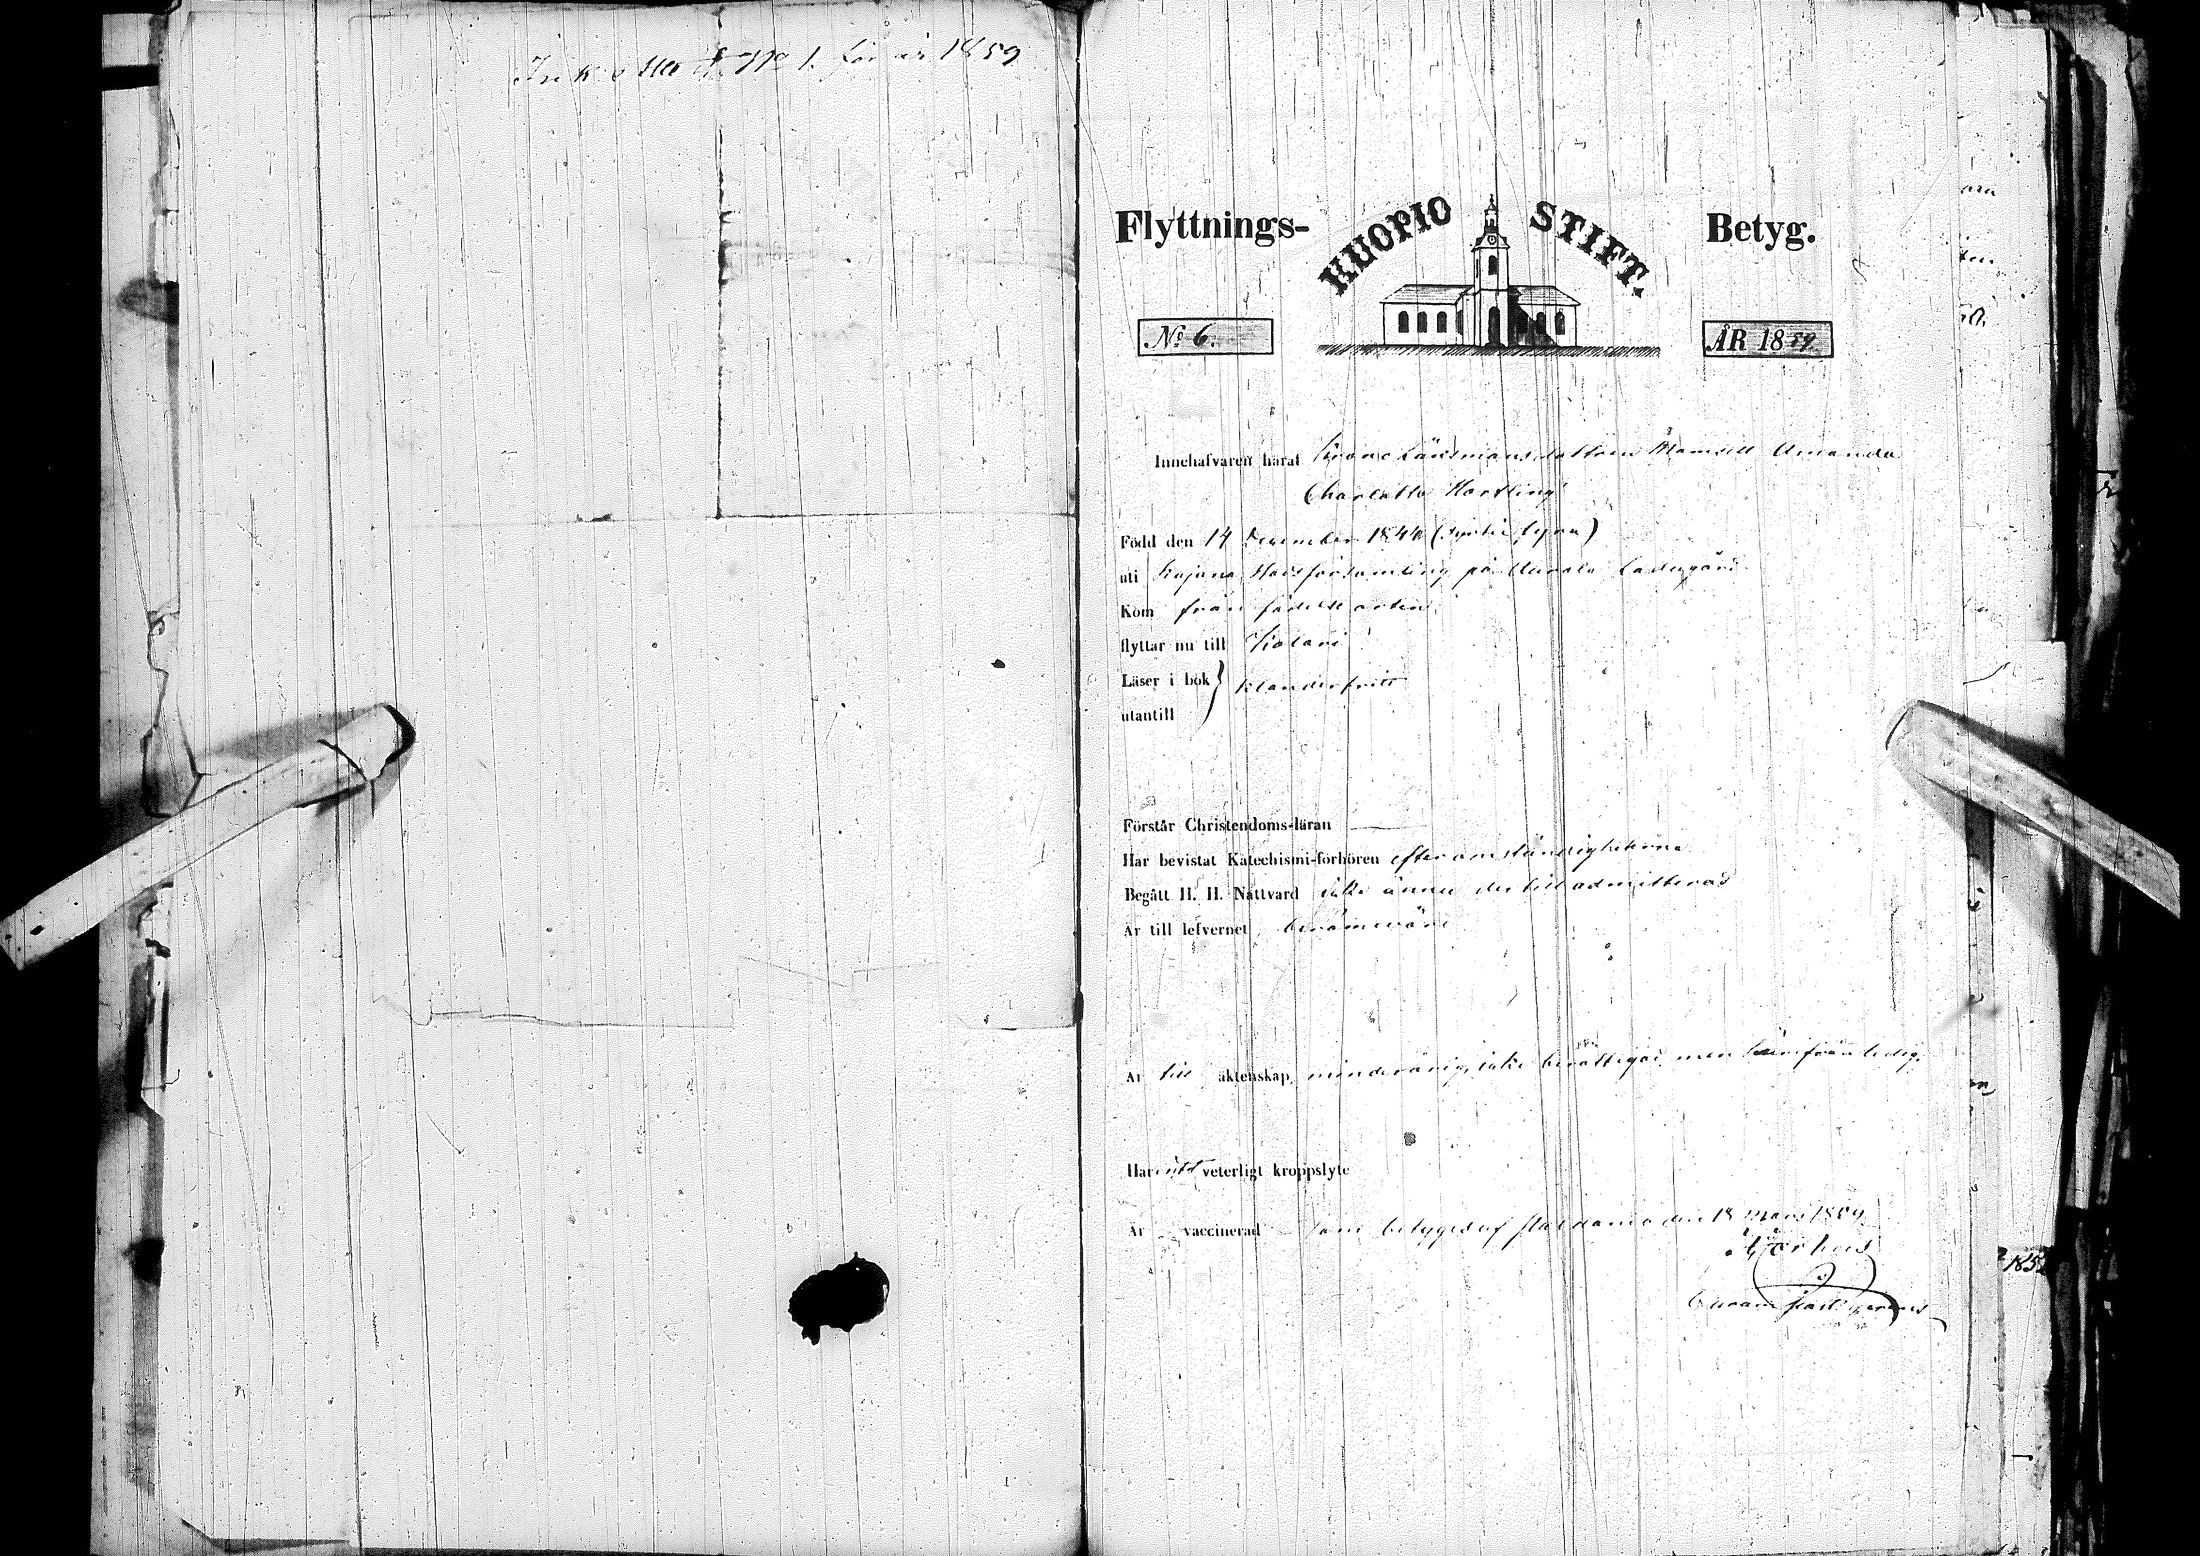 No 1. för år 1859
Flyttnings- KUOPIO STIFT. Betyg.
No 6. ÅR 1859.
Innehafvaren häraf Krono Länsmansdottren Mamsell Amanda
Charlotta Hortling
Född den 14 December 1844
uti Kajana Stadsförsamling på
Kom från födelseorten
flyttar nu till Kolari
Läser i bok } klanderfritt
utantill
Förstår Christendoms-läran
Har bevistat Katechismi-förhören efter omständigheterna
Begått H. H. Nattvard icke ännu der till admitterad
Är till lefvernet berömvärd
Är till äktenskap, minderårig, icke berättigad, men härifrån ledig.
Har intet veterligt kroppslyte
Är vaccinerad Som betygas af den 18 Mars 1859
185